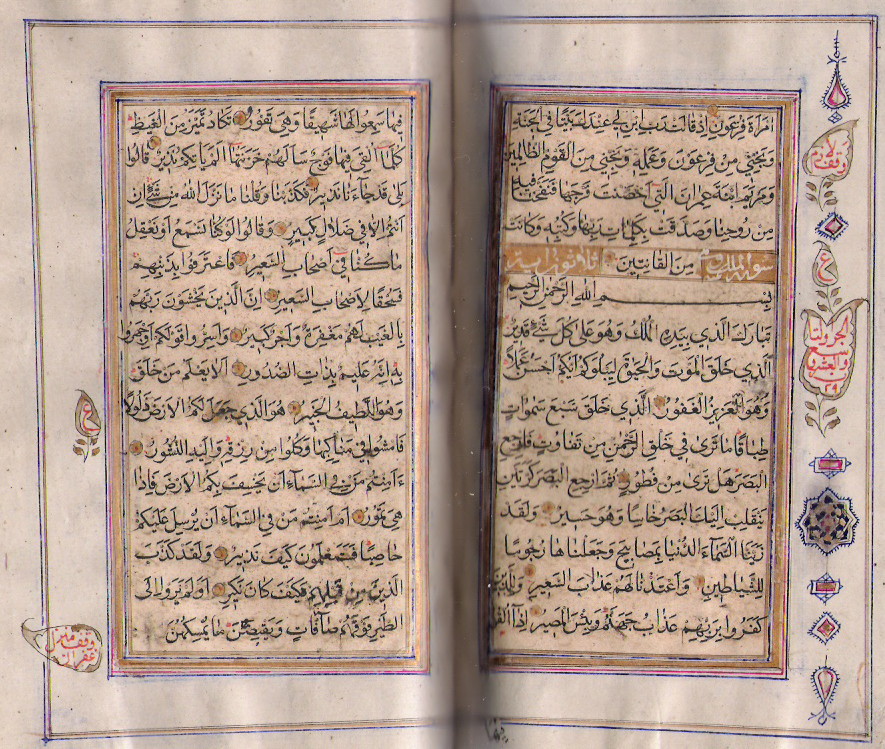 امرأة فرعون إذ قالت رب ابن لي عندك بيتا في الجنة
ونجني من فرعون وعمله ونجني من القوم الظالمين
ومريم ابنة عمران التي احصنت فرجها فنفخنا فيه
من روحنا وصدقت بكلمات ربها وكتبه وكانت
سورة الملك من القانتين ثلاثون اية
بسم الله الرحمن الرحيم
تبارك الذي بيده الملك وهو على كل شيء قدير
الذي خلق الموت والحيوة ليبلوكم ايكم احسن عملا
وهو العزيز الغفور الذي خلق سبع سموات
طباقا ما ترى في خلق الرحمن من تفاوت فارجع
البصر هل ترى من فطور ثم ارجع البصر كرتين
ينقلب اليك البصر خاسئا وهو حسير ولقد
زينا السماء الدنيا بمصابيح وجعلناها رجوما
للشياطين واعتدنا لهم عذاب السعير وللذين
كفروا بربهم عذاب جهنم وبئس المصير اذا القوا
ع
ع
فيها
فيها سمعوا لها شهيقا وهي تفور تكاد تميز من الغيظ
كلما القي فيها فوج سالهم خزنتها الم ياتكم نذير قالوا
بلى قد جاءنا نذير فكذبنا وقلنا ما نزل الله من شيء ان
انتم الا في ضلال كبير وقالوا لو كنا نسمع او نعقل
ما كنا في اصحاب السعير فاعترفوا بذنبهم
فسحقا لاصحاب السعير ان الذين يخشون ربهم
بالغيب لهم مغفرة واجر كبير واسروا قولكم او اجهروا
به انه عليم بذات الصدور الا يعلم من خلق
وهو اللطيف الخبير هو الذي جعل لكم الارض ذلولا
فامشوا في مناكبها وكلوا من رزقه واليه النشور
ءامنتم من في السماء ان يخسف بكم الارض فاذا
هي تمور ام امنتم من في السماء ان يرسل عليكم
حاصبا فستعلمون كيف نذير ولقد كذب
الذين من قبلهم فكيف كان نكير اولم يروا الى
الطير فوقهم صافات ويقبضن ما يمسكهن
ع